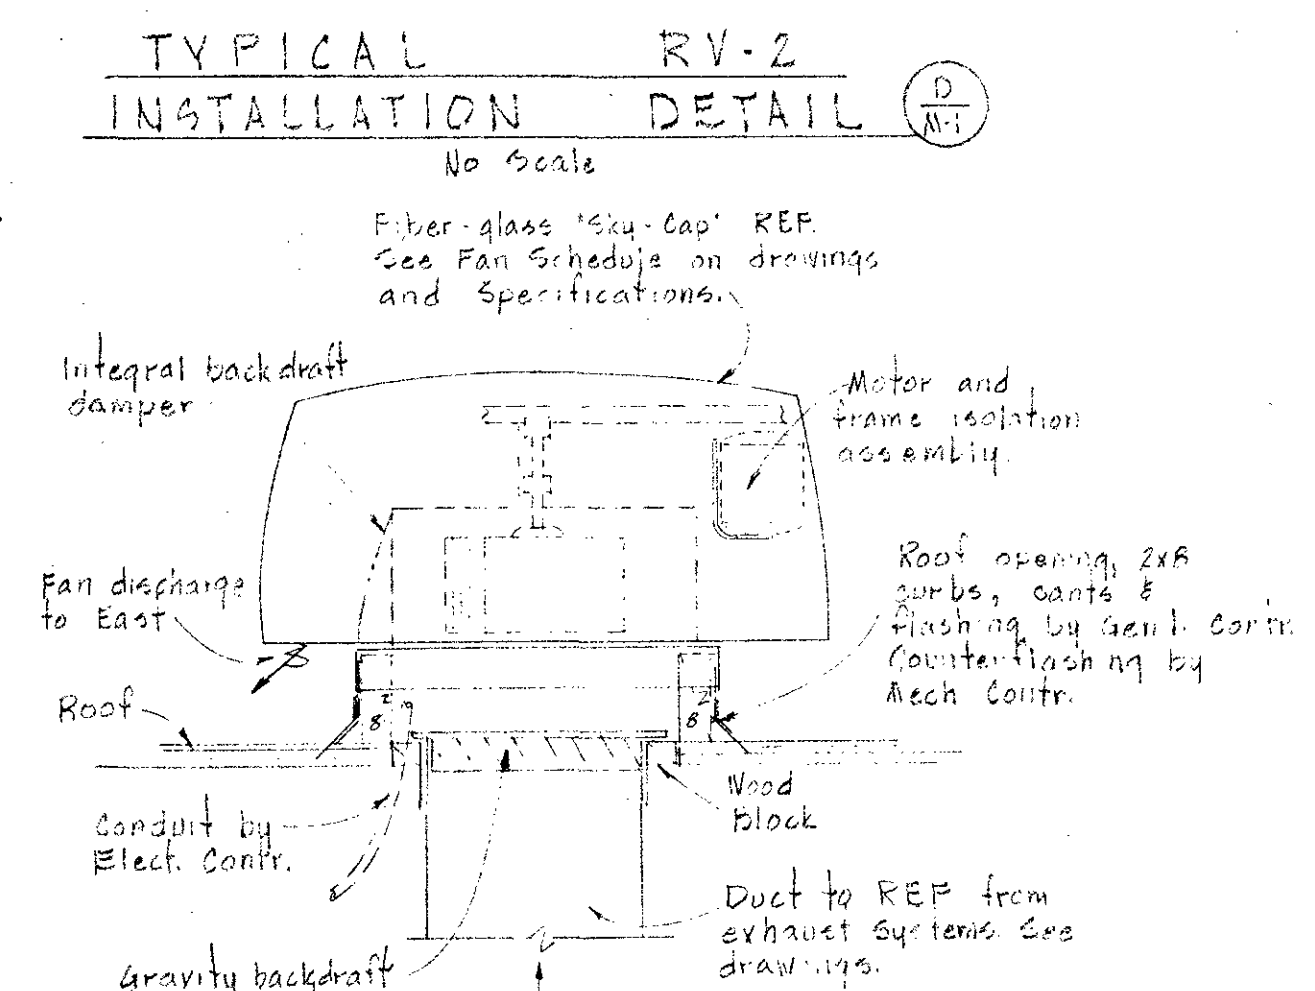 TYPICAL RV-2
INSTALLATION DETAIL
D
M-1
No Scale
Fiber-glass "Sky-Cap" REF.
See Fan Schedule on drawings
and Specifications.
Integral backdraft
damper
Motor and
frame isolation
assembly.
Fan discharge
to East
Roof opening, 2x8
curbs, cants &
flashing by Gen'l. Contr.
Counterflashing by
Mech Contr.
Roof
2
8
2
8
Wood
Block
Conduit by
Elect. Contr.
Duct to REF from
exhaust systems. See
drawings.
Gravity backdraft